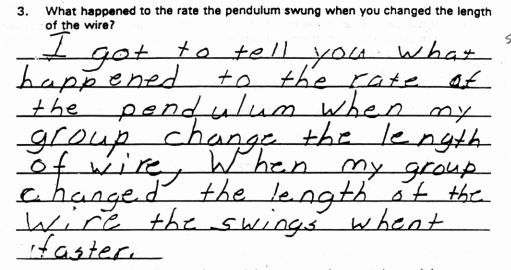 3. What happened to the rate the pendulum swung when you changed the length
of the wire?
I got to tell you what
happened to the rate of
the pendulum when my
group change the length
of wire, When my group
changed the length of the
wire the swings whent
faster.